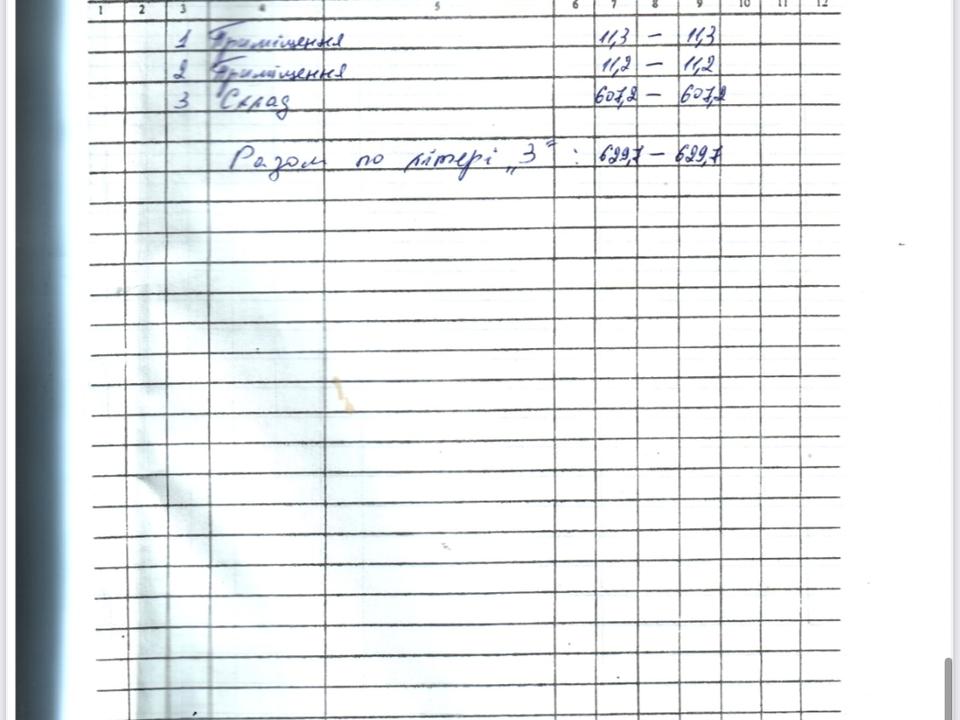 1 2 3 4 5 6 7 8 9 10 11 12
1 Приміщення 11,3 — 11,3
2 Приміщення 11,2 — 11,2
3 Склад 607,2 — 607,2
Разом по літері „З“ : 629,7 — 629,7